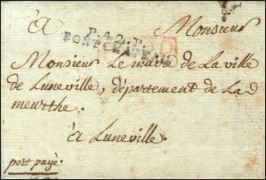 à Monsieur
P.42.P.
PONT-A-
Monsieur Le maire de La ville
de Luneville, département de La
meurthe.
à Luneville.
port payé.